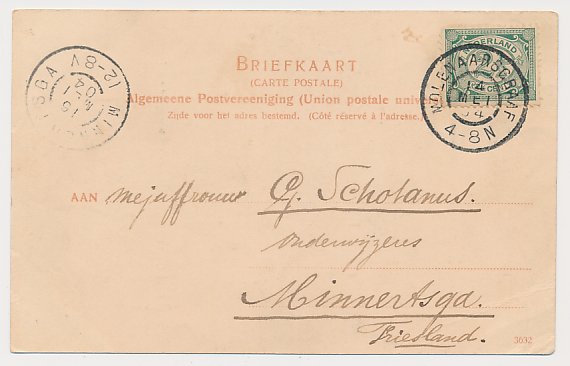 BRIEFKAART
(CARTE POSTALE)
Algemeene Postvereeniging (Union postale univer
Zijde voor het adres bestemd. (Côté réservé à l'adresse.)
NEDERLAND
MOLENAARSGRAAF
14
MEI
04
4-8N
12-8V
04
MEI
16
AAN mejuffrouw G. Scholanus.
onderwijzeres
Minnertsga.
Friesland.
3632